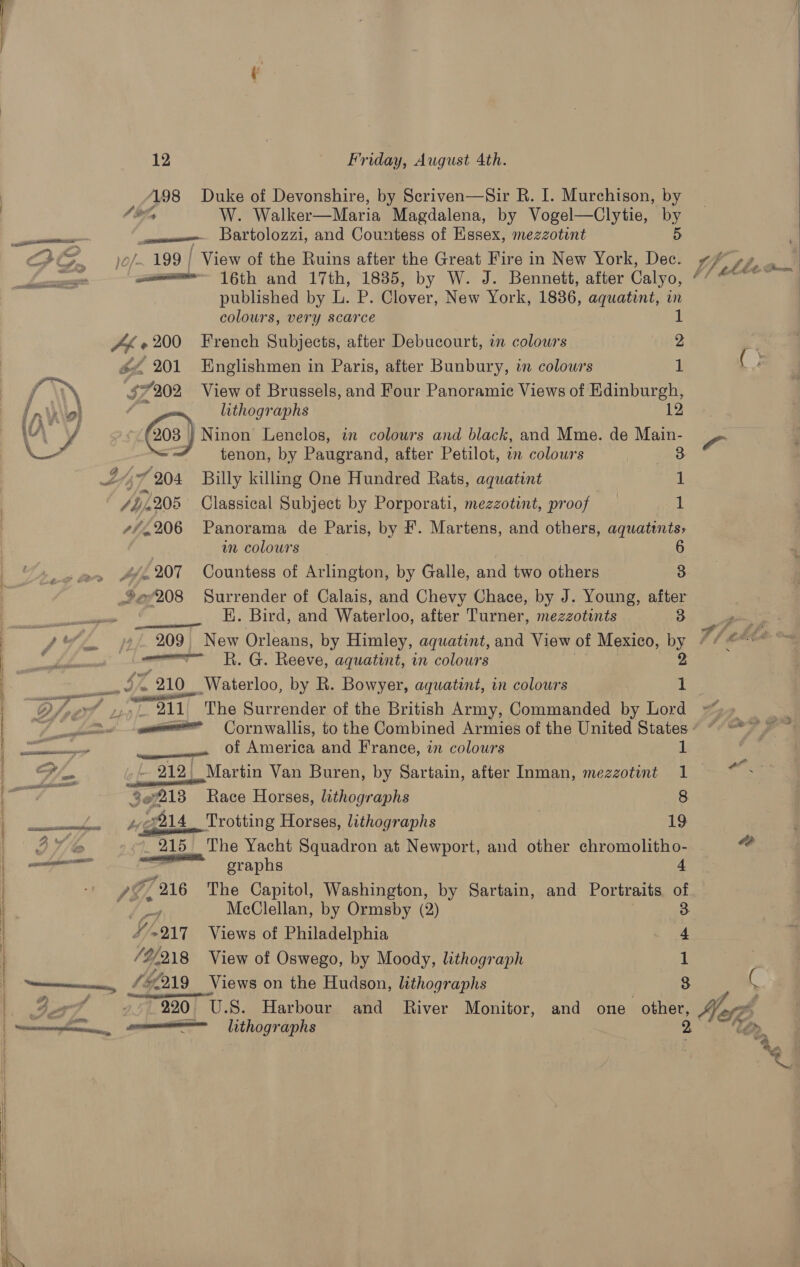 12 Friday, August 4th.
198 Duke of Devonshire, by Scriven—Sir R. I. Murchison, by
W. Walker—Maria Magdalena, by Vogel—Clytie, by
Bartolozzi, and Countess of Essex, mezzotint 5
10/- 199 View of the Ruins after the Great Fire in New York, Dec.
16th and 17th, 1835, by W. J. Bennett, after Calyo,
published by L. P. Clover, New York, 1836, aquatint, in
colours, very scarce 1
200 French Subjects, after Debucourt, in colours 2
201 Englishmen in Paris, after Bunbury, in colours 1
202 View of Brussels, and Four Panoramic Views of Edinburgh,
lithographs 12
203 Ninon Lenclos, in colours and black, and Mme. de Main-
tenon, by Paugrand, after Petilot, in colours 3
204 Billy killing One Hundred Rats, aquatint 1
205 Classical Subject by Porporati, mezzotint, proof 1
206 Panorama de Paris, by F. Martens, and others, aquatints,
in colours 6
207 Countess of Arlington, by Galle, and two others 3
208 Surrender of Calais, and Chevy Chace, by J. Young, after
E. Bird, and Waterloo, after Turner, mezzotints 3
209 New Orleans, by Himley, aquatint, and View of Mexico, by
R. G. Reeve, aquatint, in colours 2
210 Waterloo, by R. Bowyer, aquatint, in colours 1
211 The Surrender of the British Army, Commanded by Lord
Cornwallis, to the Combined Armies of the United States
of America and France, in colours 1
212 Martin Van Buren, by Sartain, after Inman, mezzotint 1
213 Race Horses, lithographs 8
214 Trotting Horses, lithographs 19
215 The Yacht Squadron at Newport, and other chromolitho-
graphs 4
216 The Capitol, Washington, by Sartain, and Portraits of
McClellan, by Ormsby (2) 3
217 Views of Philadelphia 4
218 View of Oswego, by Moody, lithograph 1
219 Views on the Hudson, lithographs 3
220 U.S. Harbour and River Monitor, and one other,
lithographs 2